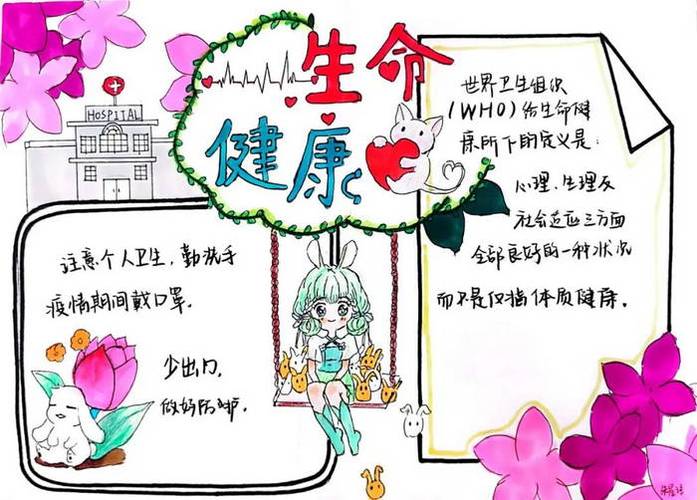 生命
健康
HOSPITAL
注意个人卫生,勤洗手
疫情期间戴口罩.
少出门,
做好防护.
世界卫生组织
(WHO)给生命健
康所下的定义是:
心理、生理及
社会适应三方面
全部良好的一种状况
而不是仅指体质健康.